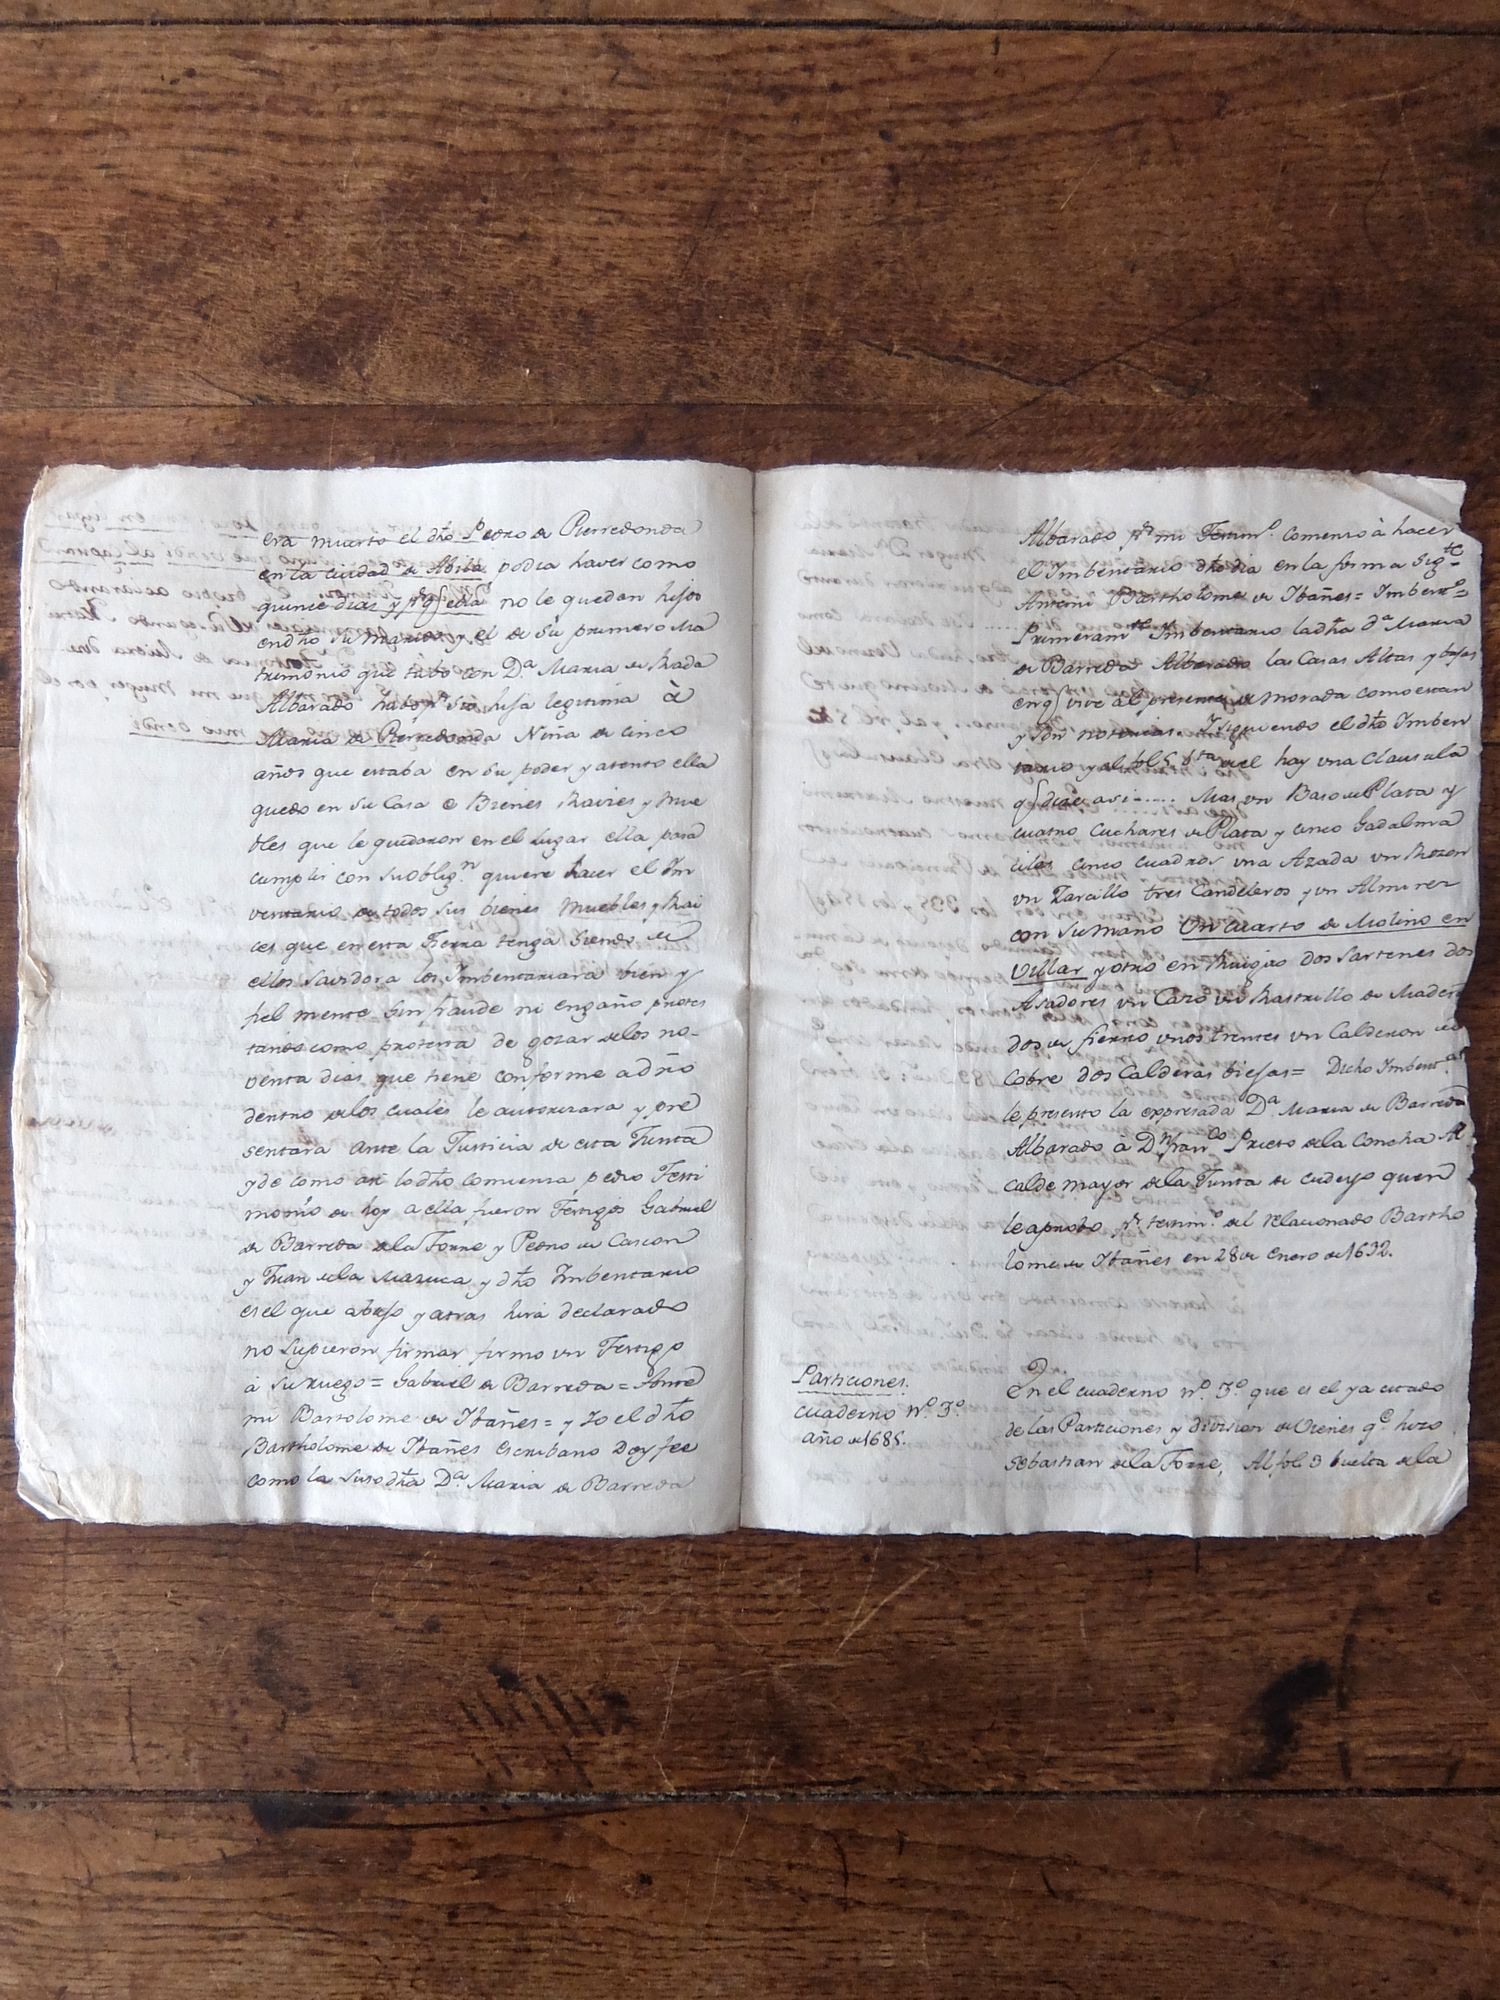 era muerto el dho Pedro de Pierredonda
en la ciudad de Abila, podia haver como
quince dias y pr q̃ ella no le quedan hijos
en dho su marido y el de su primero Ma
trimonio que tubo con Da. Maria de Rada
Albarado hubo pr su hija legitima à
Maria de Pierredonda Niña de cinco
años que estaba en su poder y atento ella
quedo en su Casa e Bienes Raizes y Mue
bles que le quedaron en el Lugar ella para
cumplir con su oblign. quiere hacer el Im
ventario de todos sus bienes Muebles y Rai
ces que en esta Tierra tenga siendo de
ellos savidora los Imbentariara bien y
fiel mente sin fraude ni engaño protes
tando como protesta de gozar de los no-
venta dias que tiene conforme a dr̃o
dentro de los cuales le autorizara y pre
sentara ante la Justicia de esta Junta
y de como asi lo dho comienza pedio Testi
monio de loy a ella fueron Testigos Gabriel
de Barreda de la Torre y Pedro de Cascon
y Juan de la Mazuca y dho Imbentario
es el que abajo y atras hirá declarado
no supieron firmar firmo un Testigo
à su ruego = Gabriel de Barreda = Ante
mi Bartolome de Ibañes = y Yo el dho
Bartholome de Ibañes Escribano Doy fee
como la susodha Da. Maria de Barreda
Albarado pr mi Testimo. comenzo à hacer
el Imbentario dho dia en la forma sigte
Antemi Bartholome de Ibañes = Imbento. =
Primeramte Imbentario la dha Da. Maria
de Barreda Albarado las Casas Altas y bajas
en q̃ vive al presente de morada como estan
y son notorias. Y siguiendo el dho Imben
tario y al fol. 5 bta de el hay una Clausula
q̃ dice asi ..... Mas un Baso de Plata y
cuatro Cuchares de Plata y cinco
cinco cuadros una Azada un Rozon
un Zarcillo tres Candeleros y un Almirez
con su mano Un cuarto de Molino en
Villar y otro en dos Sartenes dos
Asadores un Cazo un Rastrillo de Madera
dos de fierro unos trentes un Calderon de
Cobre dos Calderas biejas = Dicho Imbento.
le presento la expresada Da. Maria de Barreda
Albarado à Dn. Franco Prieto de la Concha Al
calde mayor de la Junta de Cudeyo quien
le aprobo pr testimo. del relacionado Bartho
lome de Ibañes en 28 de Enero de 1632.
Particiones.
Cuaderno No. 3o
año de 1685.
En el cuaderno no. 3o. que es el ya citado
de las Particiones y division de Vienes qe hizo
Sebastian de la Torre, Al fol. 3 buelta de la